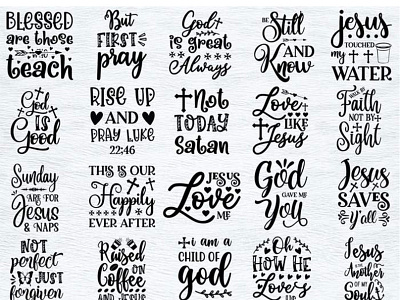 BLESSED
are those
who
teach
But
FIRST
pray
God
is great
Always
BE
Still
AND
Know
jesus
TOUCHED
my
WATER
God
is
Good
RISE UP
AND
PRAY LUKE
22:46
Not
TODAY
Satan
Love
LIKE
Jesus
WALK BY
Faith
NOT BY
Sight
Sunday
ARE FOR
Jesus
& NAPS
THIS IS OUR
Happily
EVER AFTER
JESUS
Love
ME
God
GAVE ME
You
Jesus
SAVES
Y'all
NOT
perfect
JUST
forgiven
Raised
ON
Coffee
AND JESUS
i am a
CHILD OF
god
Oh
HOW HE
Loves
Jesus
IS THE
Another
OF MY
Soul